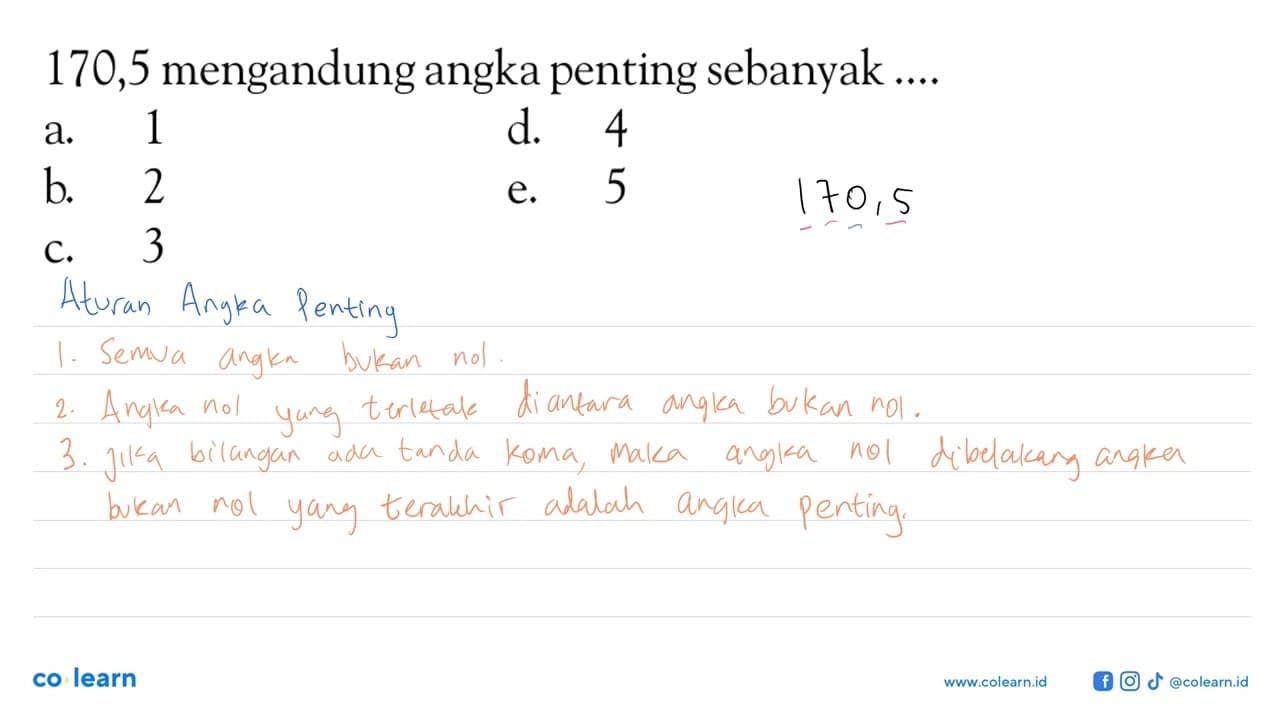 170,5 mengandung angka penting sebanyak ....
a. 1 d. 4
b. 2 e. 5
c. 3
170,5
Aturan Angka Penting
1. Semua angka bukan nol.
2. Angka nol yang terletak diantara angka bukan nol.
3. Jika bilangan ada tanda koma, maka angka nol dibelakang angka
bukan nol yang terakhir adalah angka penting.
co learn
www.colearn.id @colearn.id